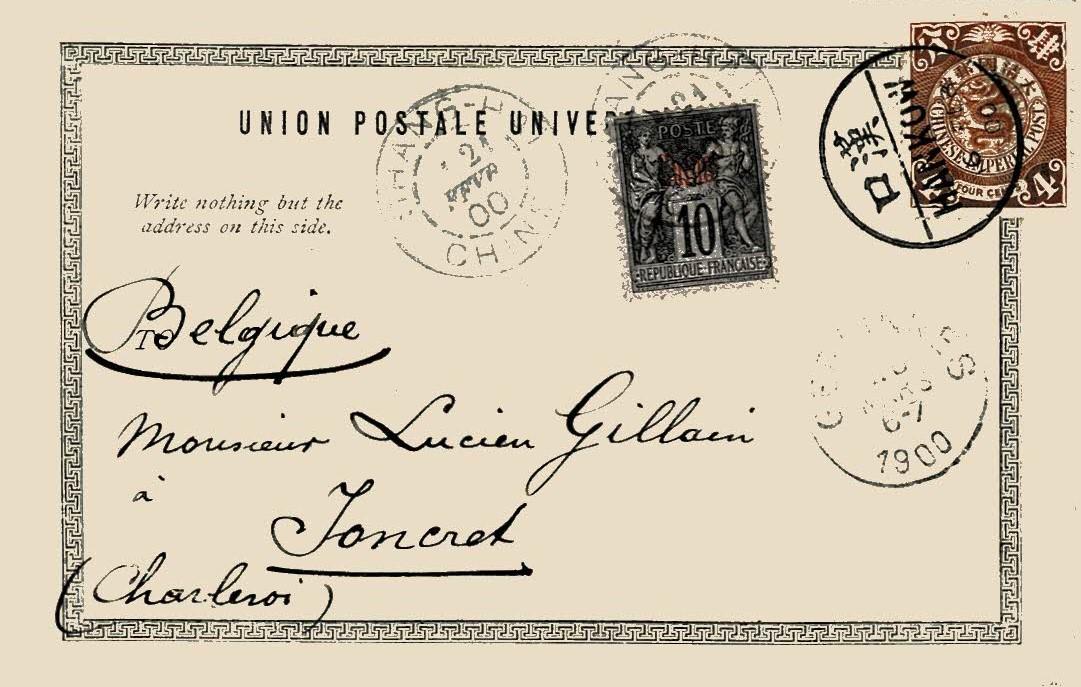 UNION POSTALE UNIVER
Write nothing but the
address on this side.
SHANG-HAI
21
JANV
00
CHINE
POSTE
Chine
10
REPUBLIQUE FRANÇAISE
大清國郵政
肆
CHINESE IMPERIAL POST
FOUR CENTS
4
HANKOW
漢口
TO
Belgique
Monsieur Lucien Gillain
à
Joncret
(Charleroi)
6-7
1900